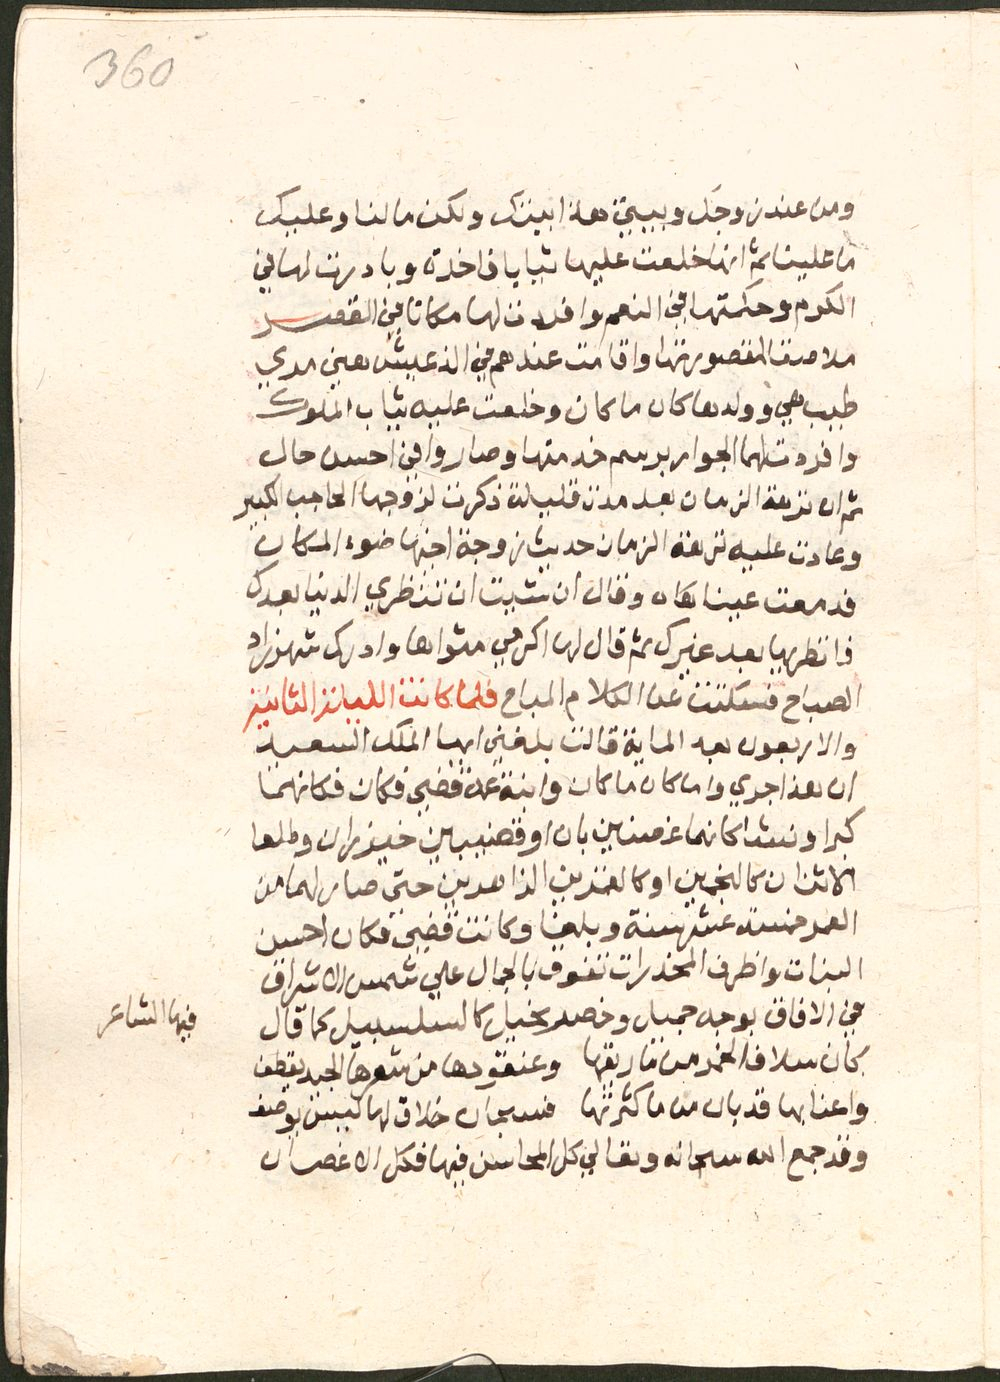 360
ومن عند زوجك وبيتي هذا بيتك ولكن ما لنا وعليك
ما علينا ثم انها خلعت عليها ثيابا فاخرة وبادرت لها في
الكرم وحكمتها في النعم وافردت لها مكانا في القصر
ملاصقا لمقصورتها واقامت عندهم في الذ عيش هي
طيب هي وولدها كان ما كان وخلعت عليه ثياب الملوك
وافردت لهما الجوار برسم خدمتها وصاروا في احسن حال
ثم ان نزهة الزمان بعد مدة قليلة ذكرت لزوجها الحاجب الكبير
وعادت عليه نزهة الزمان حديث زوجة اخيها ضوء المكان
فدمعت عيناه وقال ان شيت ان تنظري الدنيا بعدك
فانظريها بعد غيرك ثم قال لها اكرمي مثواها وادرك شهرزاد
الصباح فسكتت عن الكلام المباح فلما كانت الليلة الثانية
والاربعون بعد الماية قالت بلغني ايها الملك السعيد
ان هذا جري واما كان ما كان وابنة عمه قضي فكان فكانهما
كبرا ونشا كانهما غصنين بان او قضيبين خيزران وطلعا
الاثنان كالنجمين او كالقمرين الزاهرين حتي صار لهما من
العمر خمسة عشر سنة وبلغا وكانت قضي فكان احسن
البنات واظرف المخدرات تفوق بالجمال علي شمس الاشراق
في الافاق بوجه جميل وخصر نحيل كالسلسبيل كما قال
فيها الشاعر
كان سلاف الخمر من تا ريقها وعنقودها من شعرها الجعد يقطف
واعنابها قد بان من ما كثرتها فسبحان خلاق لها ليس يوصف
وقد جمع الله سبحانه وتعالي كل المحاسن فيها فكل الاغصان